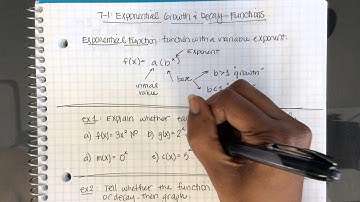 7-1: Exponential Growth & Decay Functions
Exponential Function: function with a variable exponent.
exponent
f(x)= a(bˣ)
initial value
base
b>1 "growth"
b<1
ex1 Explain whether
a) f(x)=3x² NO b) g(x)=2ˣ
d) m(x)=0ˣ e) c(x)=5
ex2 Tell whether the function
or decay. Then graph.